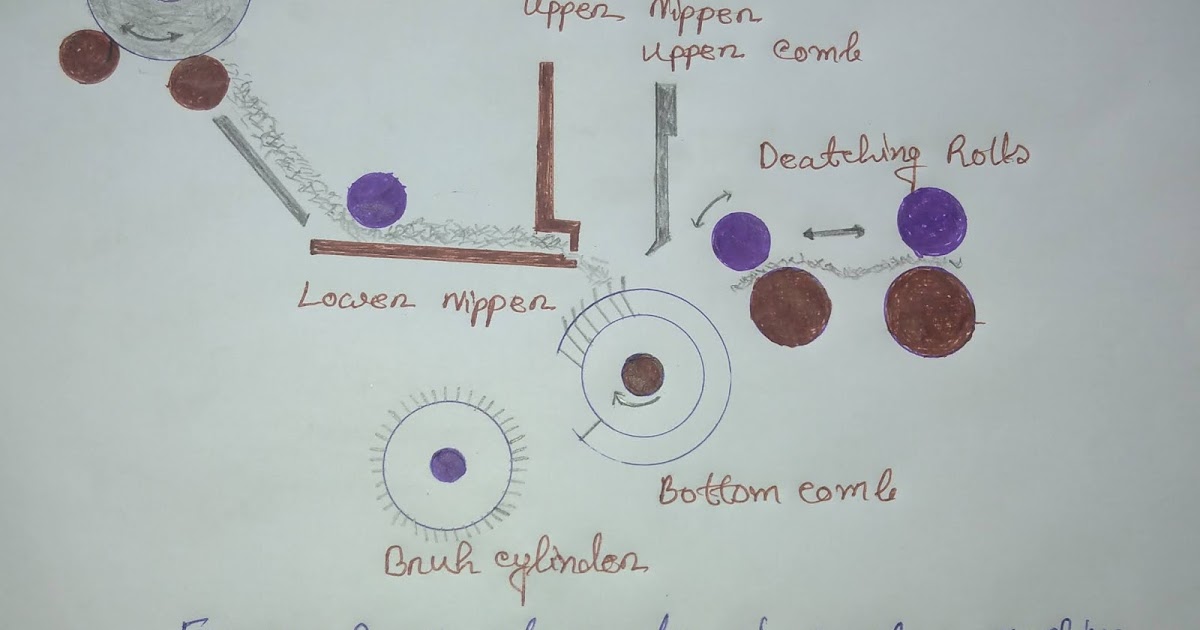 Upper Nipper
Upper Comb
Deatching Rolls
Lower Nipper
Bottom comb
Bruh cylinder